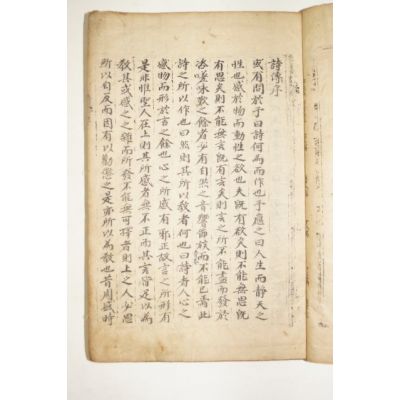 詩傳序
或有問於予曰詩何爲而作也予應之曰人生而靜天之
性也感於物而動性之欲也夫旣有欲矣則不能無思旣
有思矣則不能無言旣有言矣則言之所不能盡而發於
咨嗟咏歎之餘者必有自然之音響節族而不能已焉此
詩之所以作也曰然則其所以敎者何也曰詩者人心之
感物而形於言之餘也心之所感有邪正故言之所形有
是非惟聖人在上則其所感者無不正而其言皆足以爲
敎其或感之之雜而所發不能無可擇者則上之人必思
所以自反而因有以勸懲之是亦所以爲敎也昔周盛時